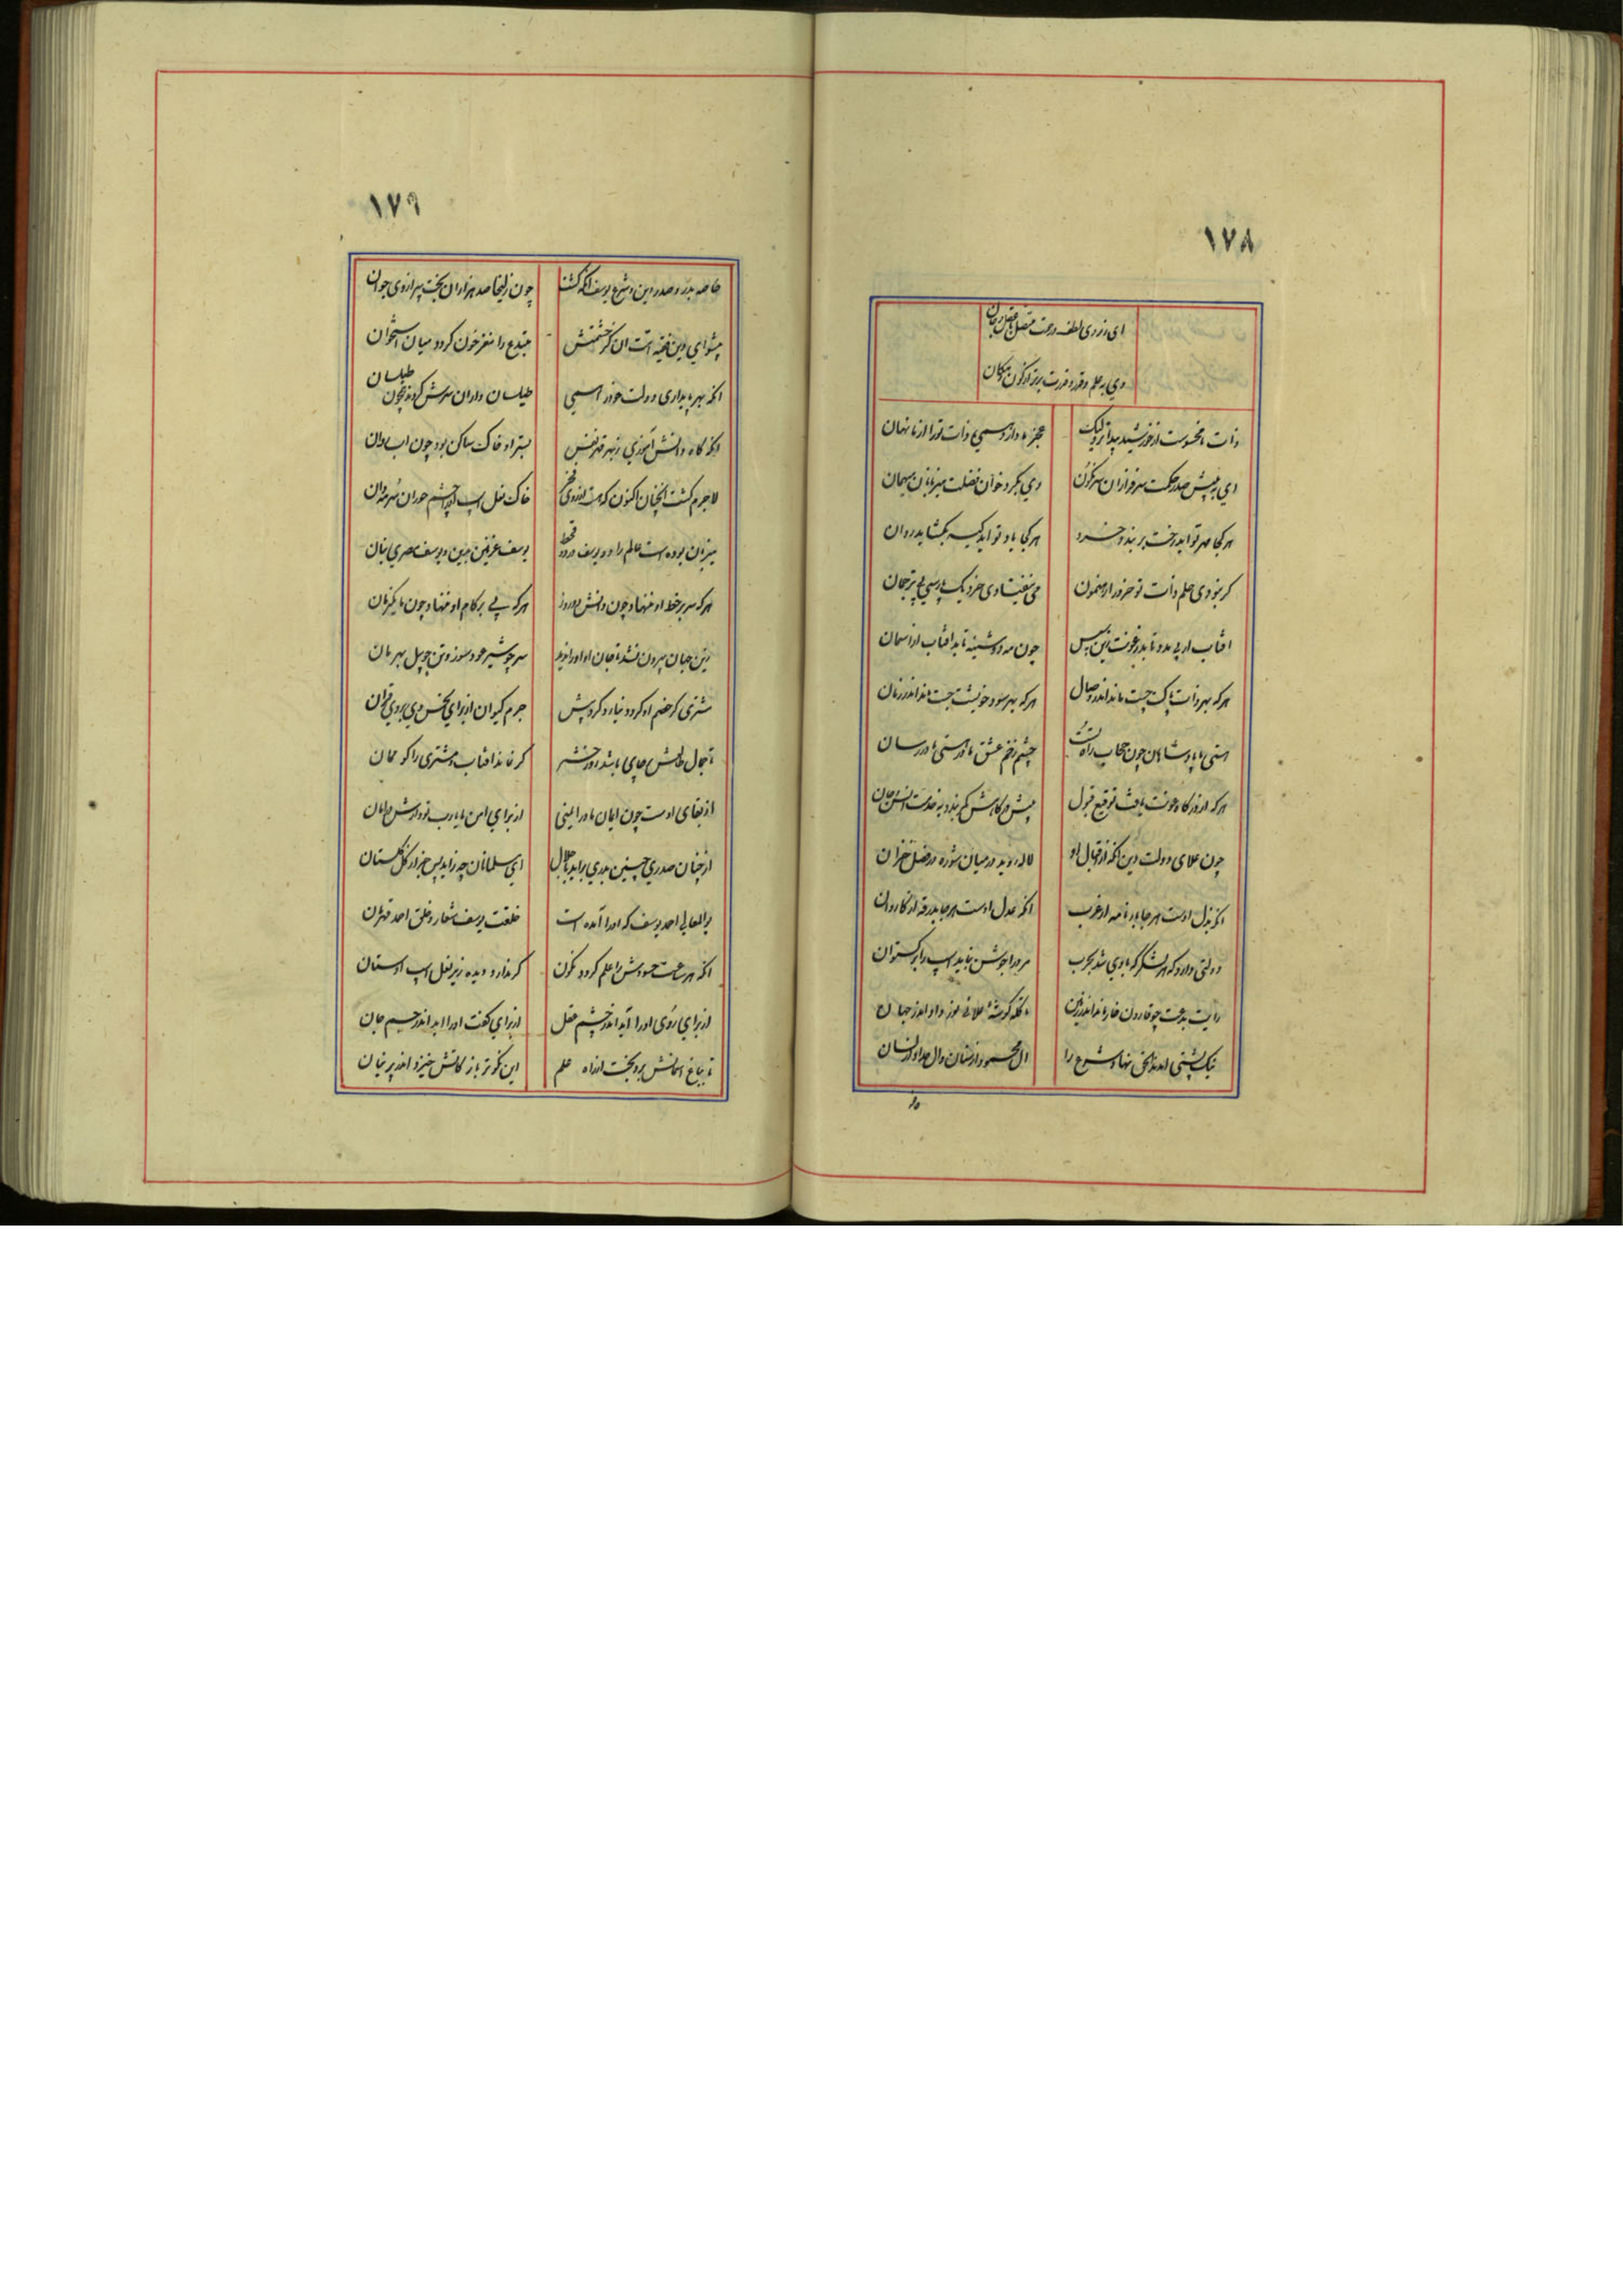 ۱۷۸
ای ز روی لطف و رحمت متصل با عقل و جان
وی به علم و قدر و قدرت برتر از کون و مکان
ذات ما محسوست از خورشید پیداتر ولیک
عجز ما دارد همی ذات ترا از ما نهان
ای به پیش صدر حکمت سرفرازان سرنگون
وی بگرد خوان فضلت میزبانان میهمان
هر کجا مهر تو آید رخت بر بندد خرد
هر کجا یاد تو آید کیسه بگشاید روان
کر نبودی حلم ذات تو خرد را رهنمون
آفتاب ار پی مدد تابد ز عونت زین سپس
چون مه دوشینه تابد آفتاب از آسمان
هر که بهر ذات پاکت جست ماند اندر وصال
هر که بهر سود خویشت جست ماند اندر زیان
هستی ما پادشاهان چون حجاب راه تست
چشم زخم عشق ما در هستی ما در رسان
هر که از درگاه عونت یافت توقیع قبول
پیش درگاهش کمر بندد به خدمت انس و جان
چون علای دولت و دین آنکه از اقبال او
لاله روید در میان شوره در فصل خزان
آنکه بذل اوست هر جا بدرقه از عرب
آنکه عدل اوست هر جا بدرقه از کاروان
دولتی دارد که هر لشکر که با وی شد بحرب
مرد را جوشن نباید اسب را برگستوان
رایت بدعت چو قارون خار ماند اندر زمین
تا کله گوشهٔ علائی موز داد اندر جهان
نیک پشتی آمدند الحق نهاد شرع را
آل محمود از سنان و آل حداد از لسان
۱۷۹
خاصه بدر و صدر دین و شرع یوسف آنکه گشت
چون زلیخا صد هزاران بخت پیر از وی جوان
پیشوای دین فقیه امت آن کز حشمتش
مبتدع را مغز خون گردد میان استخوان
آنکه بهر پایداری دولت خود را همی
طیلسان داران سرش کردند چون طیلسان
آنکه گاه دانش آموزی ز بهر قهر نفس
بستر او خاک ساکن بود چون آب روان
لاجرم گشت آنچنان اکنون که هست از روی فخر
خاک نعل اسب او در چشم حوران سرمه دان
میزبان بوده است عالم را دو یوسف در دو قحط
یوسف غزنین ببین و یوسف مصری بنان
هر که سر بر خط او ننهاد چون دانش دو روز
هر که پی بر کام او ننهاد چون ما یک زمان
زین جهان بیرون نشد تا جان او او را ندید
سر چو شیر عود سوز و تن چو پیل بهرمان
مشتری گر خصم او گردد نیارد کرد پیش
جرم کیوان از برای نحس وی بر وی قران
تا جمال طالعش جای باشد روز حشر
گر نماند آفتاب و مشتری را گو ممان
از بقای اوست چون ایمان ما در ایمنی
از برای امن ما یارب تو دارش در امان
از چنان صدری چنین بدری برآید با جلال
ای مسلمانان چه زاید پس جز از گل گلستان
بوالمعالی احمد یوسف که او را آمده است
خلعت یوسف شعار و خلق احمد قهرمان
آنکه هر ساعت حسودش را علم گردد نگون
گر ندارد دیده زیر نعل اسب اوستان
از برای روی او را آید اندر چشم عقل
از برای گفت او را آید اندر جسم جان
تا بباغ آسمانش برد بخت از راه علم
این کبوتر باز کانش خیزد اندر پرنیان